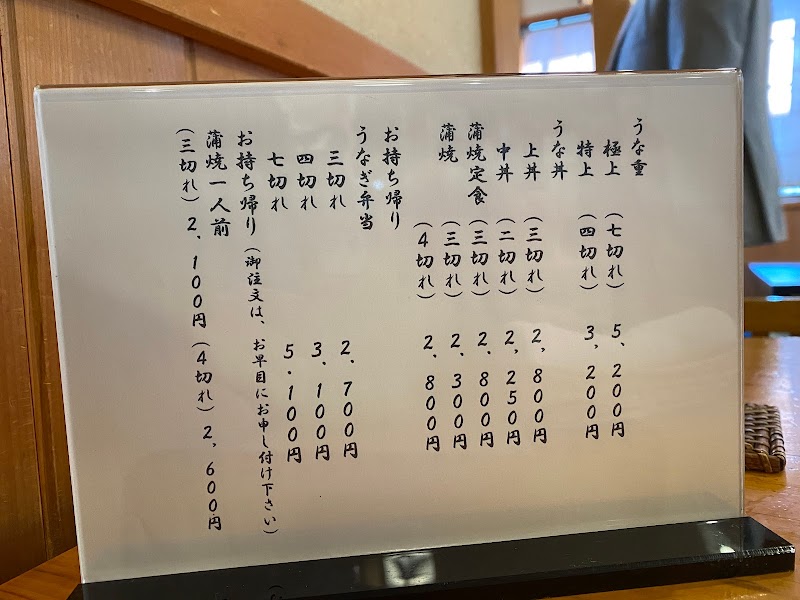 うな重
極上 (七切れ) 5,200円
特上 (四切れ) 3,200円
うな丼
上丼 (三切れ) 2,800円
中丼 (二切れ) 2,250円
蒲焼定食 (三切れ) 2,800円
蒲焼 (三切れ) 2,300円
(4切れ) 2,800円
お持ち帰り
うなぎ弁当
三切れ 2,700円
四切れ 3,100円
七切れ 5.100円
お持ち帰り (御注文は、お早目にお申し付け下さい)
蒲焼一人前
(三切れ) 2,100円 (4切れ) 2,600円